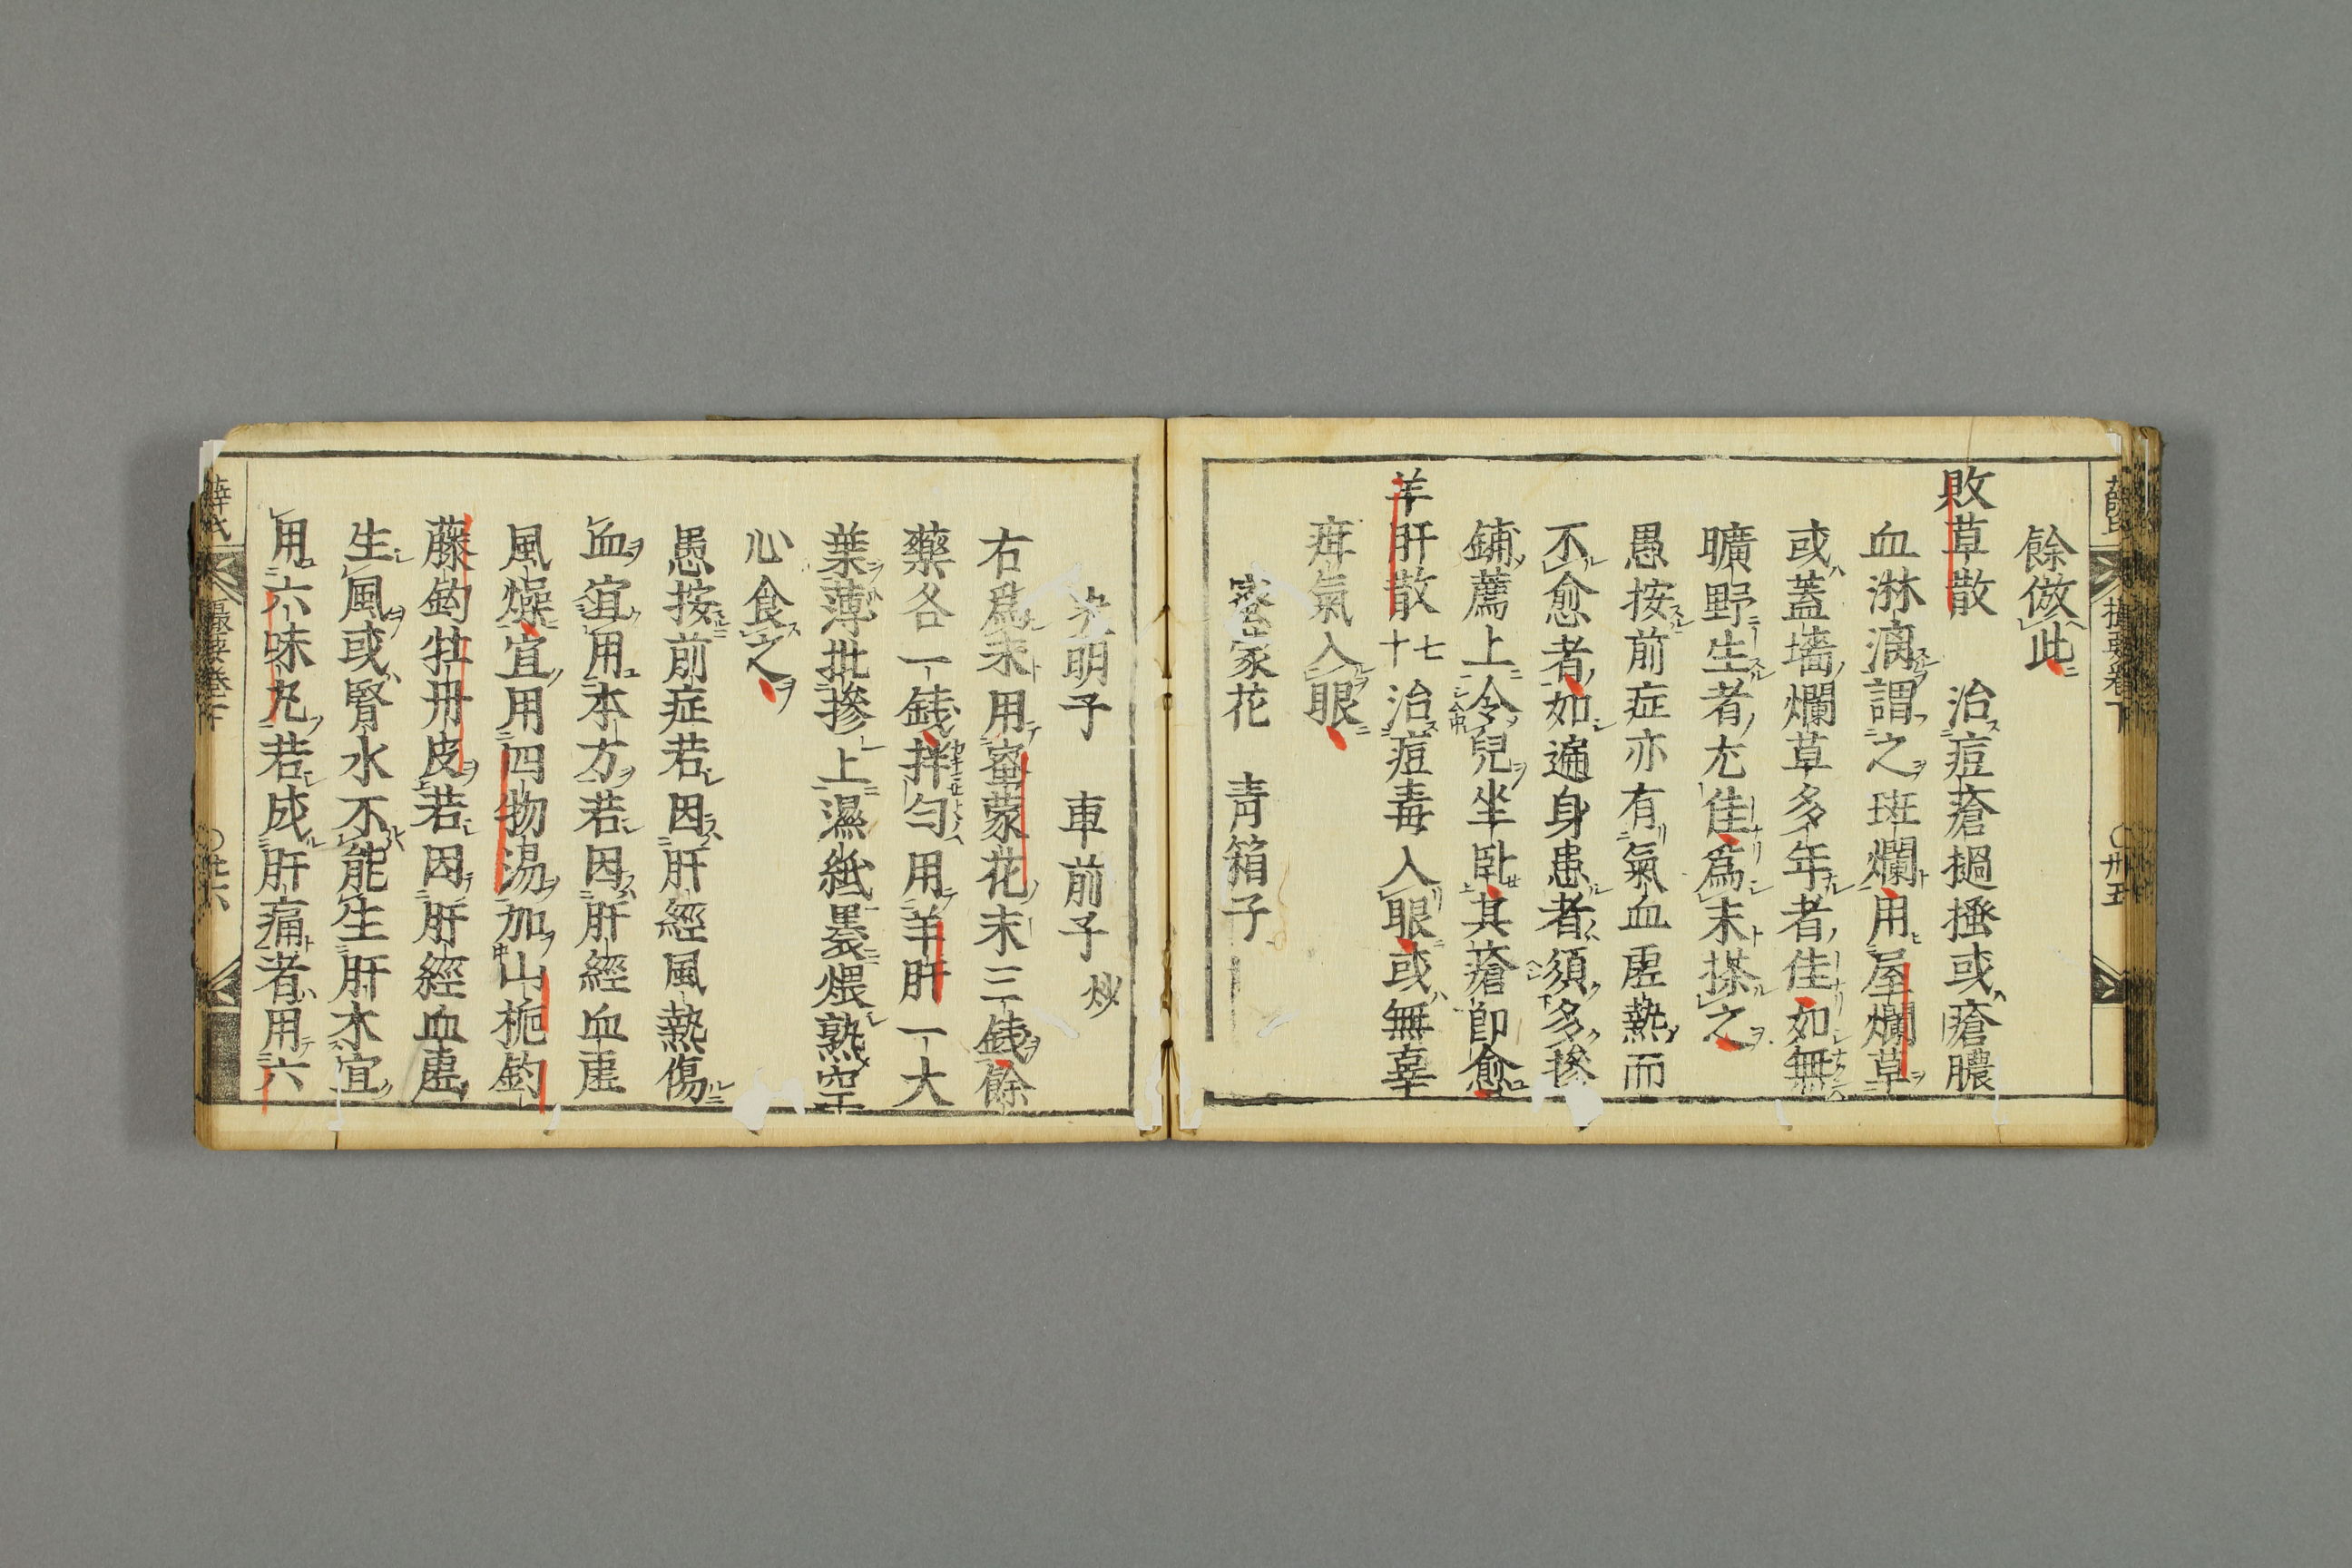 餘倣此
敗草散　治痘瘡撾搔或瘡膿
血淋漓謂之斑爛用屋爛草
或蓋墻爛草多年者佳如無
曠野生者尤佳爲末搽之
愚按前症亦有氣血虛熱而
不愈者如遍身患者須多摻
鋪薦上令兒坐臥其瘡即愈
羊肝散 七十 治痘毒入眼或無辜
疳氣入眼
密蒙花　青箱子
決明子　車前子 炒
右爲末用蜜蒙花末三錢餘
藥各一錢拌勻用羊肝一大
葉薄批摻上濕紙裹煨熟空
心食之
愚按前症若因肝經風熱傷
血宜用本方若因肝經血虛
風燥宜用四物湯加山梔鈎
藤鈎牡丹皮若因肝經血虛
生風或腎水不能生肝木宜
用六味丸若成肝痛者用六